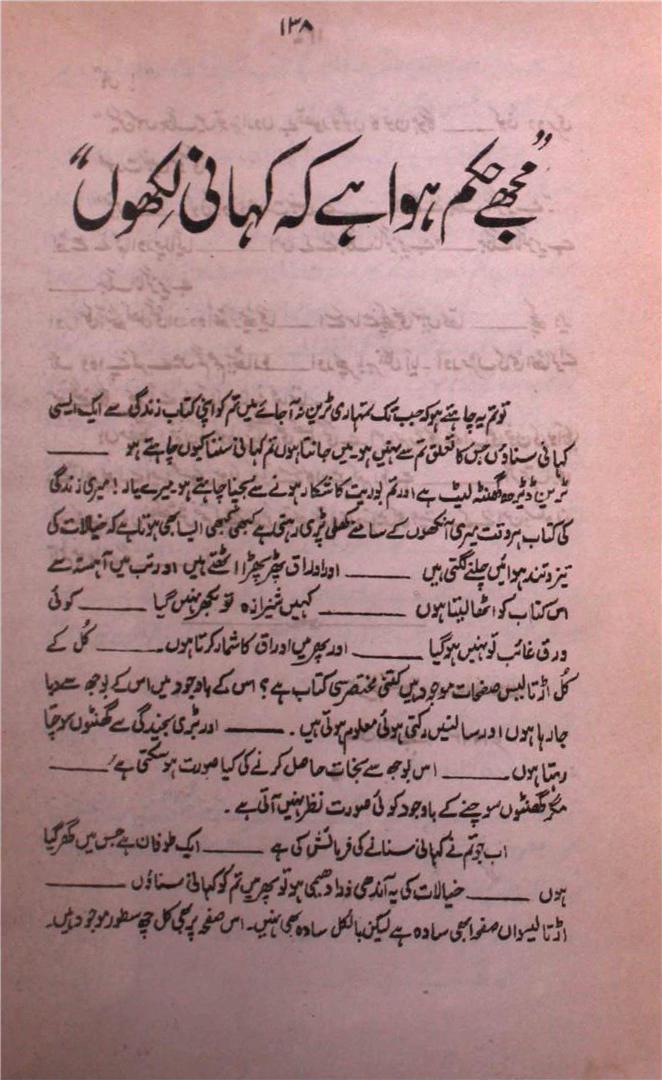 ۱۳۸
"مجھے حکم ہوا ہے کہ کہانی لکھوں"
تو تم یہ چاہتے ہو کہ جب تک تمہاری ٹرین نہ آ جائے میں تم کو اپنی کتاب زندگی سے ایک ایسی
کہانی سناؤں جس کا تعلق تم سے نہیں ہو۔ میں جانتا ہوں تم کہانی سننا کیوں چاہتے ہو ———
ٹرین ڈیڑھ گھنٹہ لیٹ ہے اور تم بوریت کا شکار ہونے سے بچنا چاہتے ہو۔ میرے یار! میری زندگی
کی کتاب ہر وقت میری آنکھوں کے سامنے کھلی پڑی رہتی ہے کبھی کبھی ایسا بھی ہوتا ہے کہ خیالات کی
تیز و تند ہوائیں چلنے لگتی ہیں ——— اور اوراق پھڑپھڑا اٹھتے ہیں اور تب میں آہستہ سے
اس کتاب کو اٹھا لیتا ہوں ——— کہیں شیرازہ تو بکھر نہیں گیا ——— کوئی
ورق غائب تو نہیں ہو گیا ——— اور پھر میں اوراق کا شمار کرتا ہوں۔ ——— کُل کے
کُل اڑتالیس صفحات موجود ہیں کتنی مختصر سی کتاب ہے؟ اس کے باوجود میں اس کے بوجھ سے دبا
جا رہا ہوں اور سانسیں رکتی ہوئی معلوم ہوتی ہیں۔ ——— اور بڑی سنجیدگی سے گھنٹوں سوچتا
رہتا ہوں ——— اس بوجھ سے نجات حاصل کرنے کی کیا صورت ہو سکتی ہے؟ ———
مگر گھنٹوں سوچنے کے باوجود کوئی صورت نظر نہیں آتی ہے۔
اب جو تم نے کہانی سنانے کی فرمائش کی ہے ——— ایک طوفان ہے جس میں گھر گیا
ہوں ——— خیالات کی یہ آندھی ذرا دھیمی ہو تو پھر میں تم کو کہانی سناؤں ———
اڑتالیسواں صفحہ ابھی سادہ ہے لیکن بالکل سادہ بھی نہیں۔ اس صفحہ پر بھی کل چھ سطور موجود ہیں۔